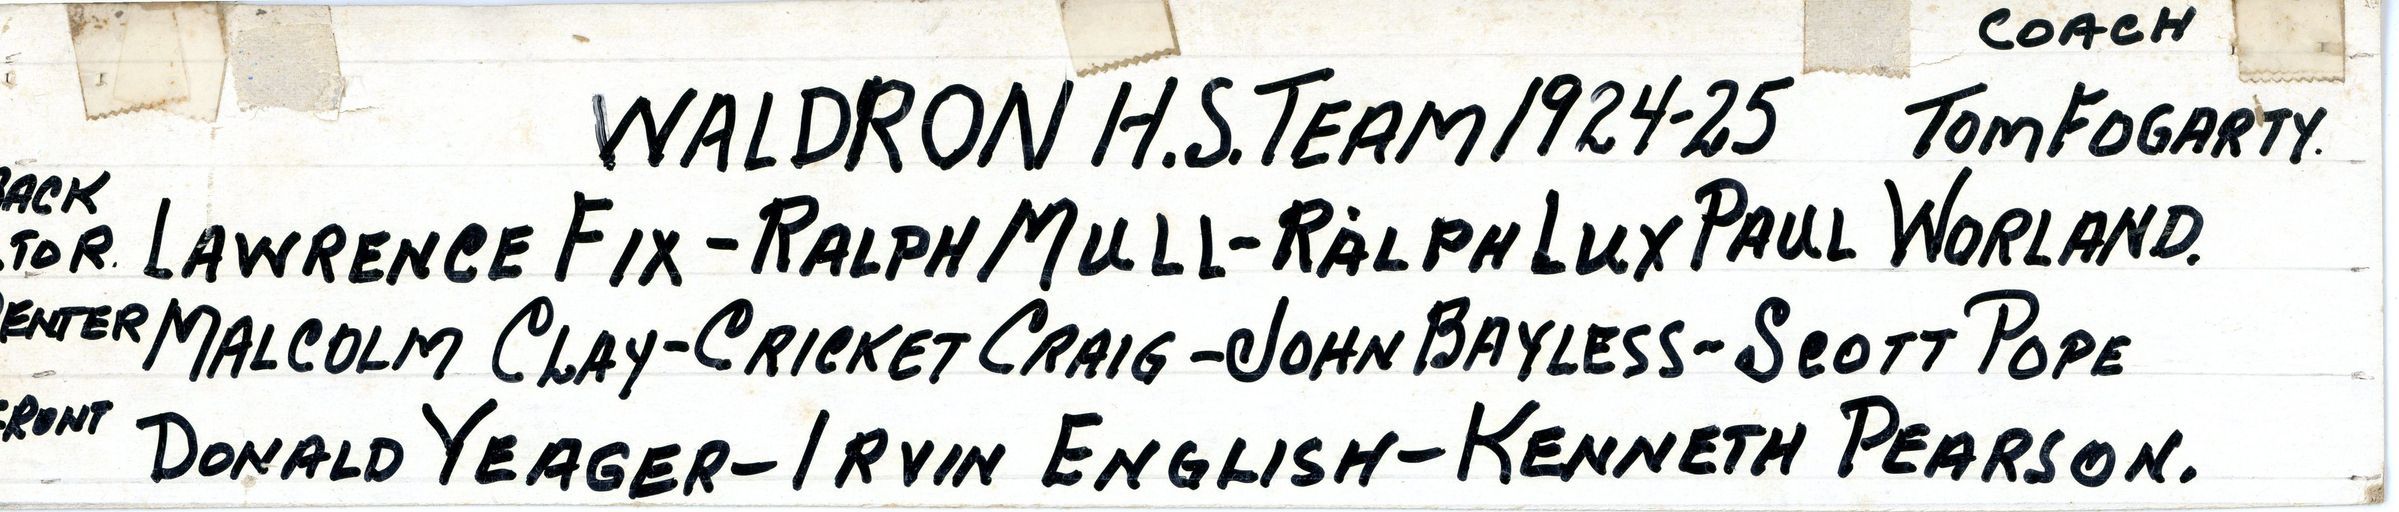 COACH
WALDRON H.S. TEAM 1924-25 TOM FOGARTY.
BACK
L TO R. LAWRENCE FIX - RALPH MULL - RALPH LUX PAUL WORLAND.
CENTER MALCOLM CLAY - CRICKET CRAIG - JOHN BAYLESS - SCOTT POPE
FRONT DONALD YEAGER - IRVIN ENGLISH - KENNETH PEARSON.